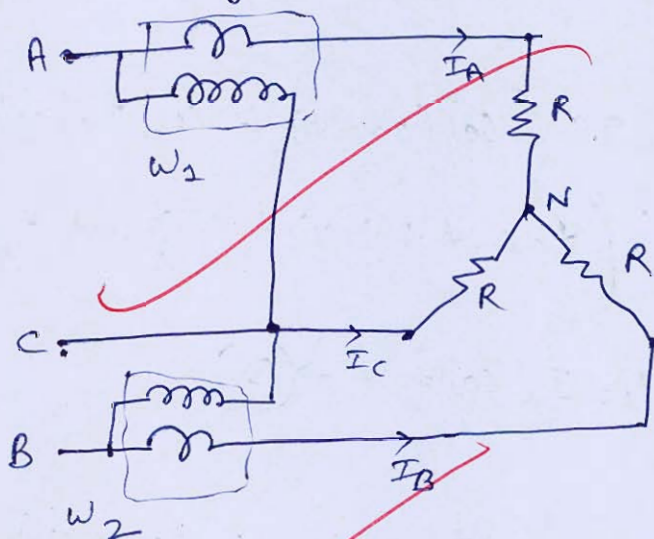 A
I_A
R
W1
N
R
R
C
I_C
B
I_B
W2